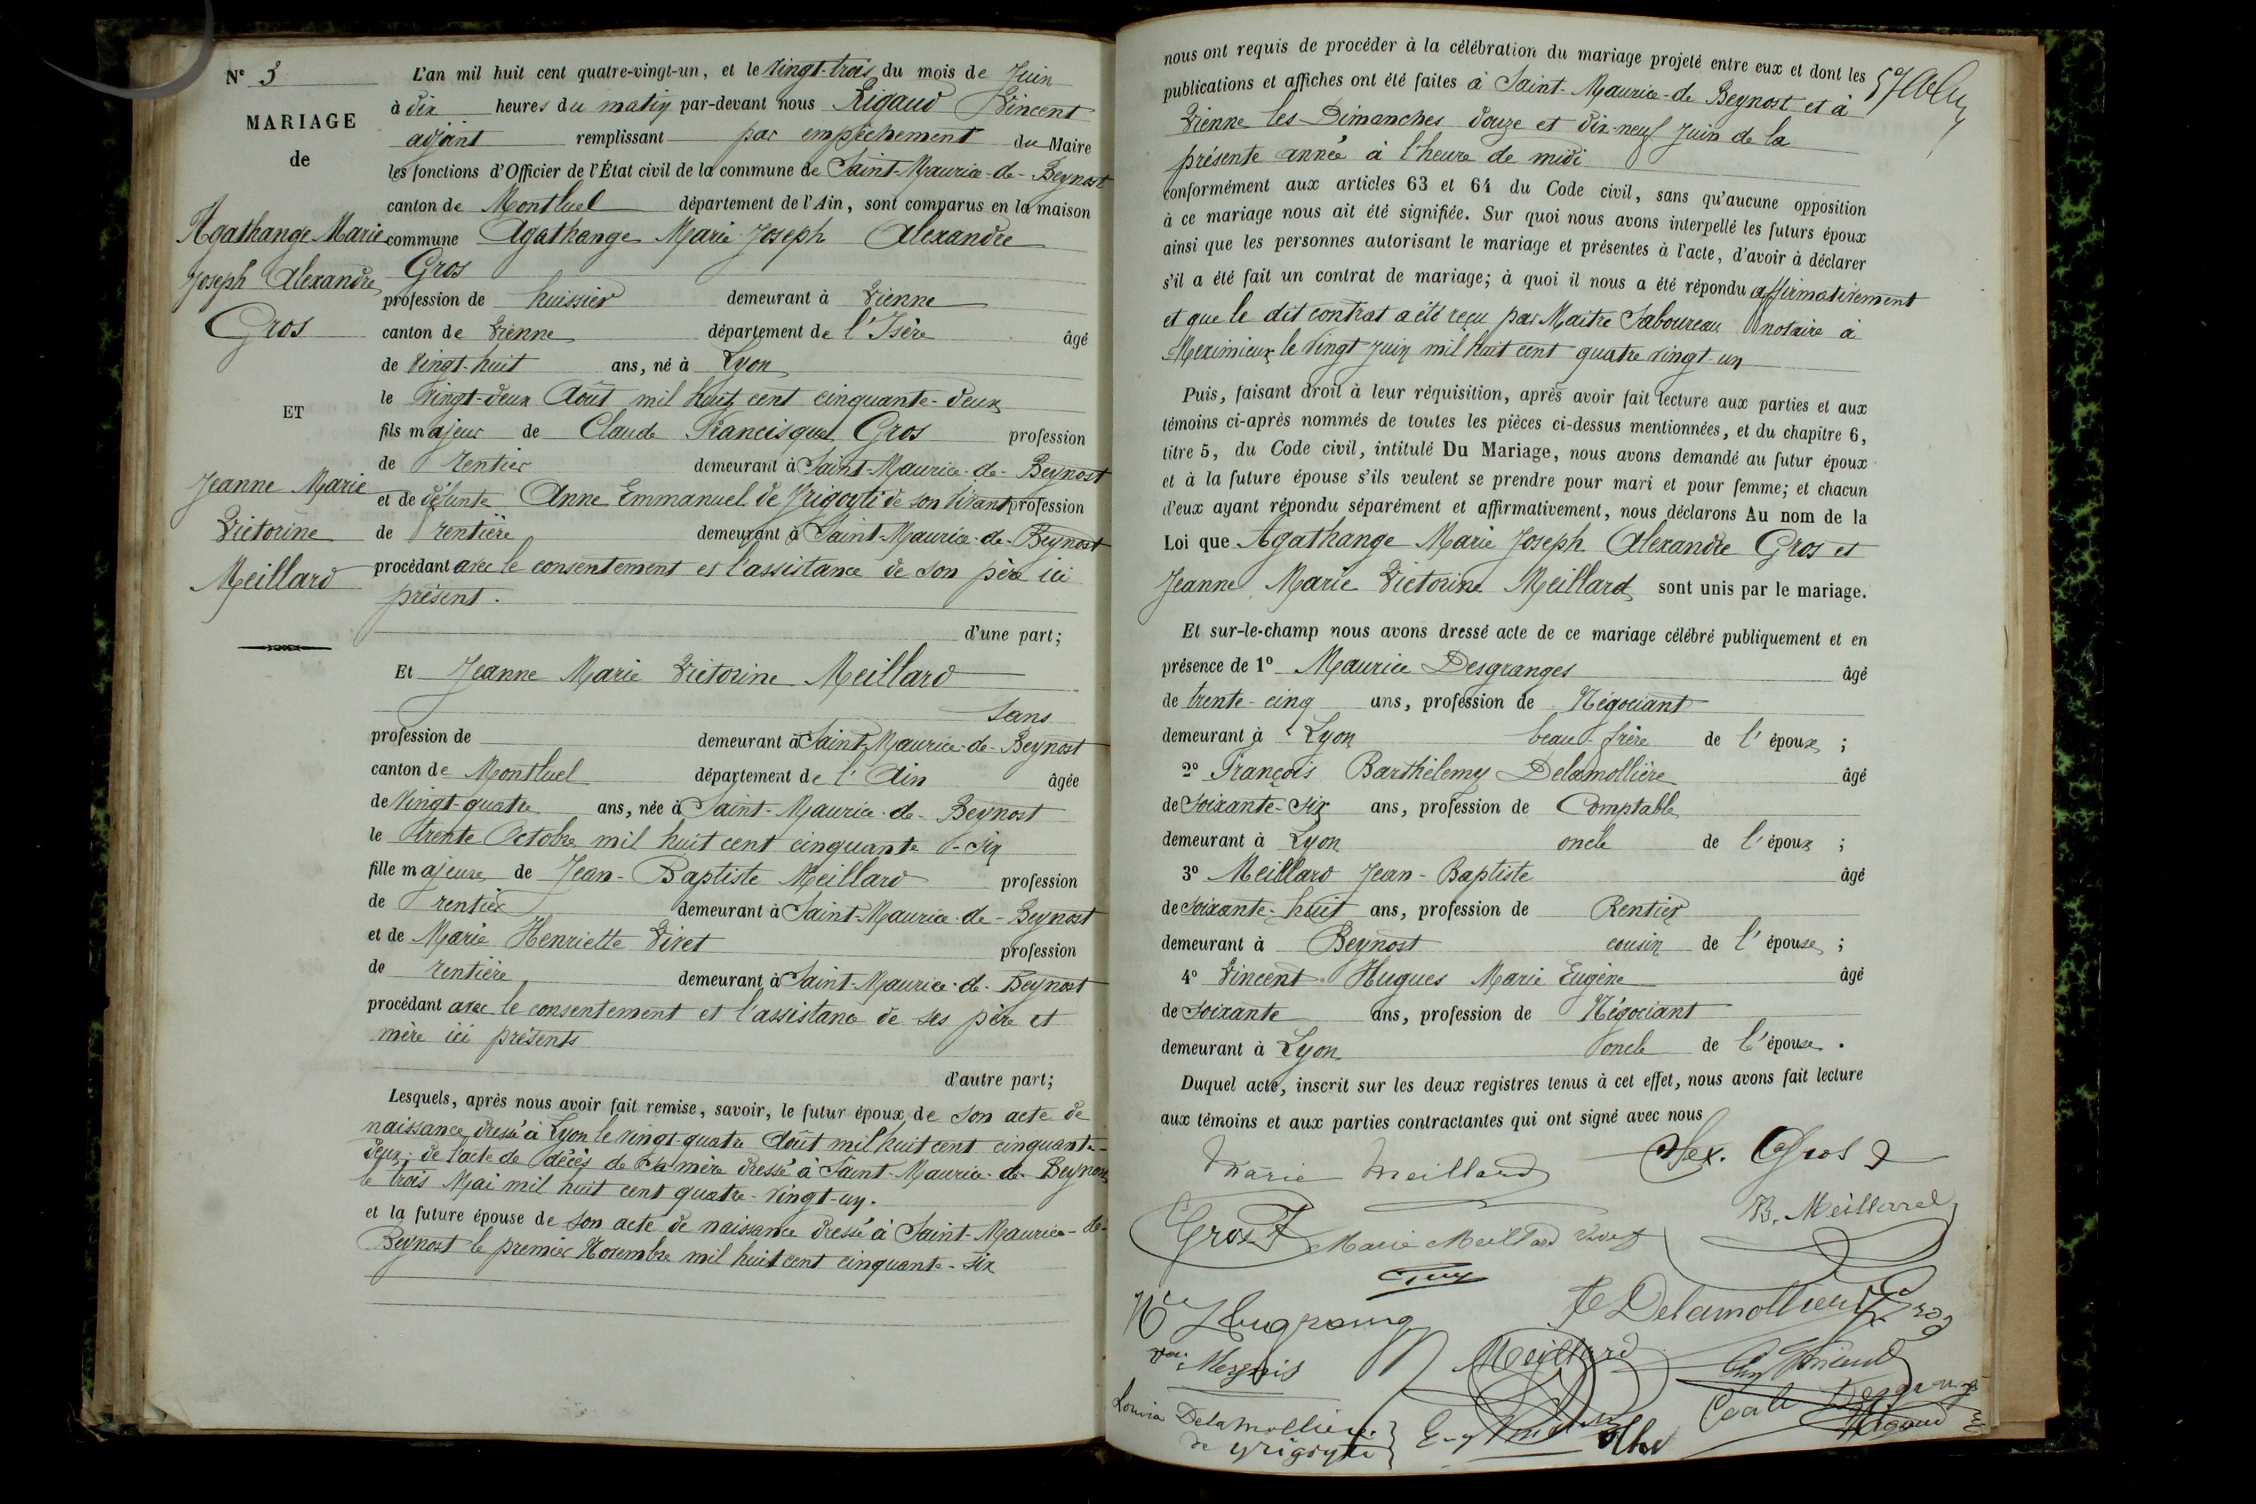 N° 3
MARIAGE
de
Agathange Marie
Joseph Alexandre
Gros
ET
Jeanne Marie
Victorine
Meillard
L'an mil huit cent quatre-vingt-un, et le vingt-trois du mois de Juin
à dix heures du matin par-devant nous Rigaud Vincent
adjoint remplissant par empêchement du Maire
les fonctions d'Officier de l'État civil de la commune de Saint-Maurice-de-Beynost
canton de Montluel département de l'Ain, sont comparus en la maison
commune Agathange Marie Joseph Alexandre
Gros
profession de huissier demeurant à Vienne
canton de Vienne département de l'Isère âgé
de vingt-huit ans, né à Lyon
le vingt-deux Août mil huit cent cinquante-deux
fils majeur de Claude Francisque Gros profession
de rentier demeurant à Saint-Maurice-de-Beynost
et de défunte Anne Emmanuel de Yrigoyti de son vivant profession
de rentière demeurant à Saint-Maurice-de-Beynost
procédant avec le consentement et l'assistance de son père ici
présent.
d'une part;
Et Jeanne Marie Victorine Meillard
Sans
profession de demeurant à Saint-Maurice-de-Beynost
canton de Montluel département de l'Ain âgée
de vingt-quatre ans, née à Saint-Maurice-de-Beynost
le trente Octobre mil huit cent cinquante-six
fille majeure de Jean-Baptiste Meillard profession
de rentier demeurant à Saint-Maurice-de-Beynost
et de Marie Henriette Viret profession
de rentière demeurant à Saint-Maurice-de-Beynost
procédant avec le consentement et l'assistance de ses père et
mère ici présents
d'autre part;
Lesquels, après nous avoir fait remise, savoir, le futur époux de son acte de
naissance dressé à Lyon le vingt-quatre Août mil huit cent cinquante-
deux; de l'acte de décès de sa mère dressé à Saint-Maurice-de-Beynost
le trois Mai mil huit cent quatre-vingt-un.
et la future épouse de son acte de naissance dressé à Saint-Maurice-de-
Beynost le premier Novembre mil huit cent cinquante-six
nous ont requis de procéder à la célébration du mariage projeté entre eux et dont les
publications et affiches ont été faites à Saint-Maurice-de Beynost et à
Vienne les Dimanches douze et dix-neuf Juin de la
présente année à l'heure de midi
conformément aux articles 63 et 64 du Code civil, sans qu'aucune opposition
à ce mariage nous ait été signifiée. Sur quoi nous avons interpellé les futurs époux
ainsi que les personnes autorisant le mariage et présentes à l'acte, d'avoir à déclarer
s'il a été fait un contrat de mariage; à quoi il nous a été répondu affirmativement
et que le dit contrat a été reçu par Maître Saboureau notaire à
Meximieux le vingt Juin mil huit cent quatre vingt-un
Puis, faisant droit à leur réquisition, après avoir fait lecture aux parties et aux
témoins ci-après nommés de toutes les pièces ci-dessus mentionnées, et du chapitre 6,
titre 5, du Code civil, intitulé Du Mariage, nous avons demandé au futur époux
et à la future épouse s'ils veulent se prendre pour mari et pour femme; et chacun
d'eux ayant répondu séparément et affirmativement, nous déclarons Au nom de la
Loi que Agathange Marie Joseph Alexandre Gros et
Jeanne Marie Victorine Meillard sont unis par le mariage.
Et sur-le-champ nous avons dressé acte de ce mariage célébré publiquement et en
présence de 1° Maurice Desgranges âgé
de trente-cinq ans, profession de Négociant
demeurant à Lyon beau-frère de l'époux ;
2° François Barthélemy Delamollière âgé
de Soixante-Six ans, profession de Comptable
demeurant à Lyon oncle de l'époux ;
3° Meillard Jean-Baptiste âgé
de Soixante-huit ans, profession de Rentier
demeurant à Beynost cousin de l'épouse ;
4° Vincent Hugues Marie Eugène âgé
de Soixante ans, profession de Négociant
demeurant à Lyon oncle de l'épouse .
Duquel acte, inscrit sur les deux registres tenus à cet effet, nous avons fait lecture
aux témoins et aux parties contractantes qui ont signé avec nous
Marie Meillard Alex. Gros
Gros F B. Meillard
Marie Meillard Viret
Delamollière
Meillard
Louisa Delamollière
de Yrigoyti
Rigaud